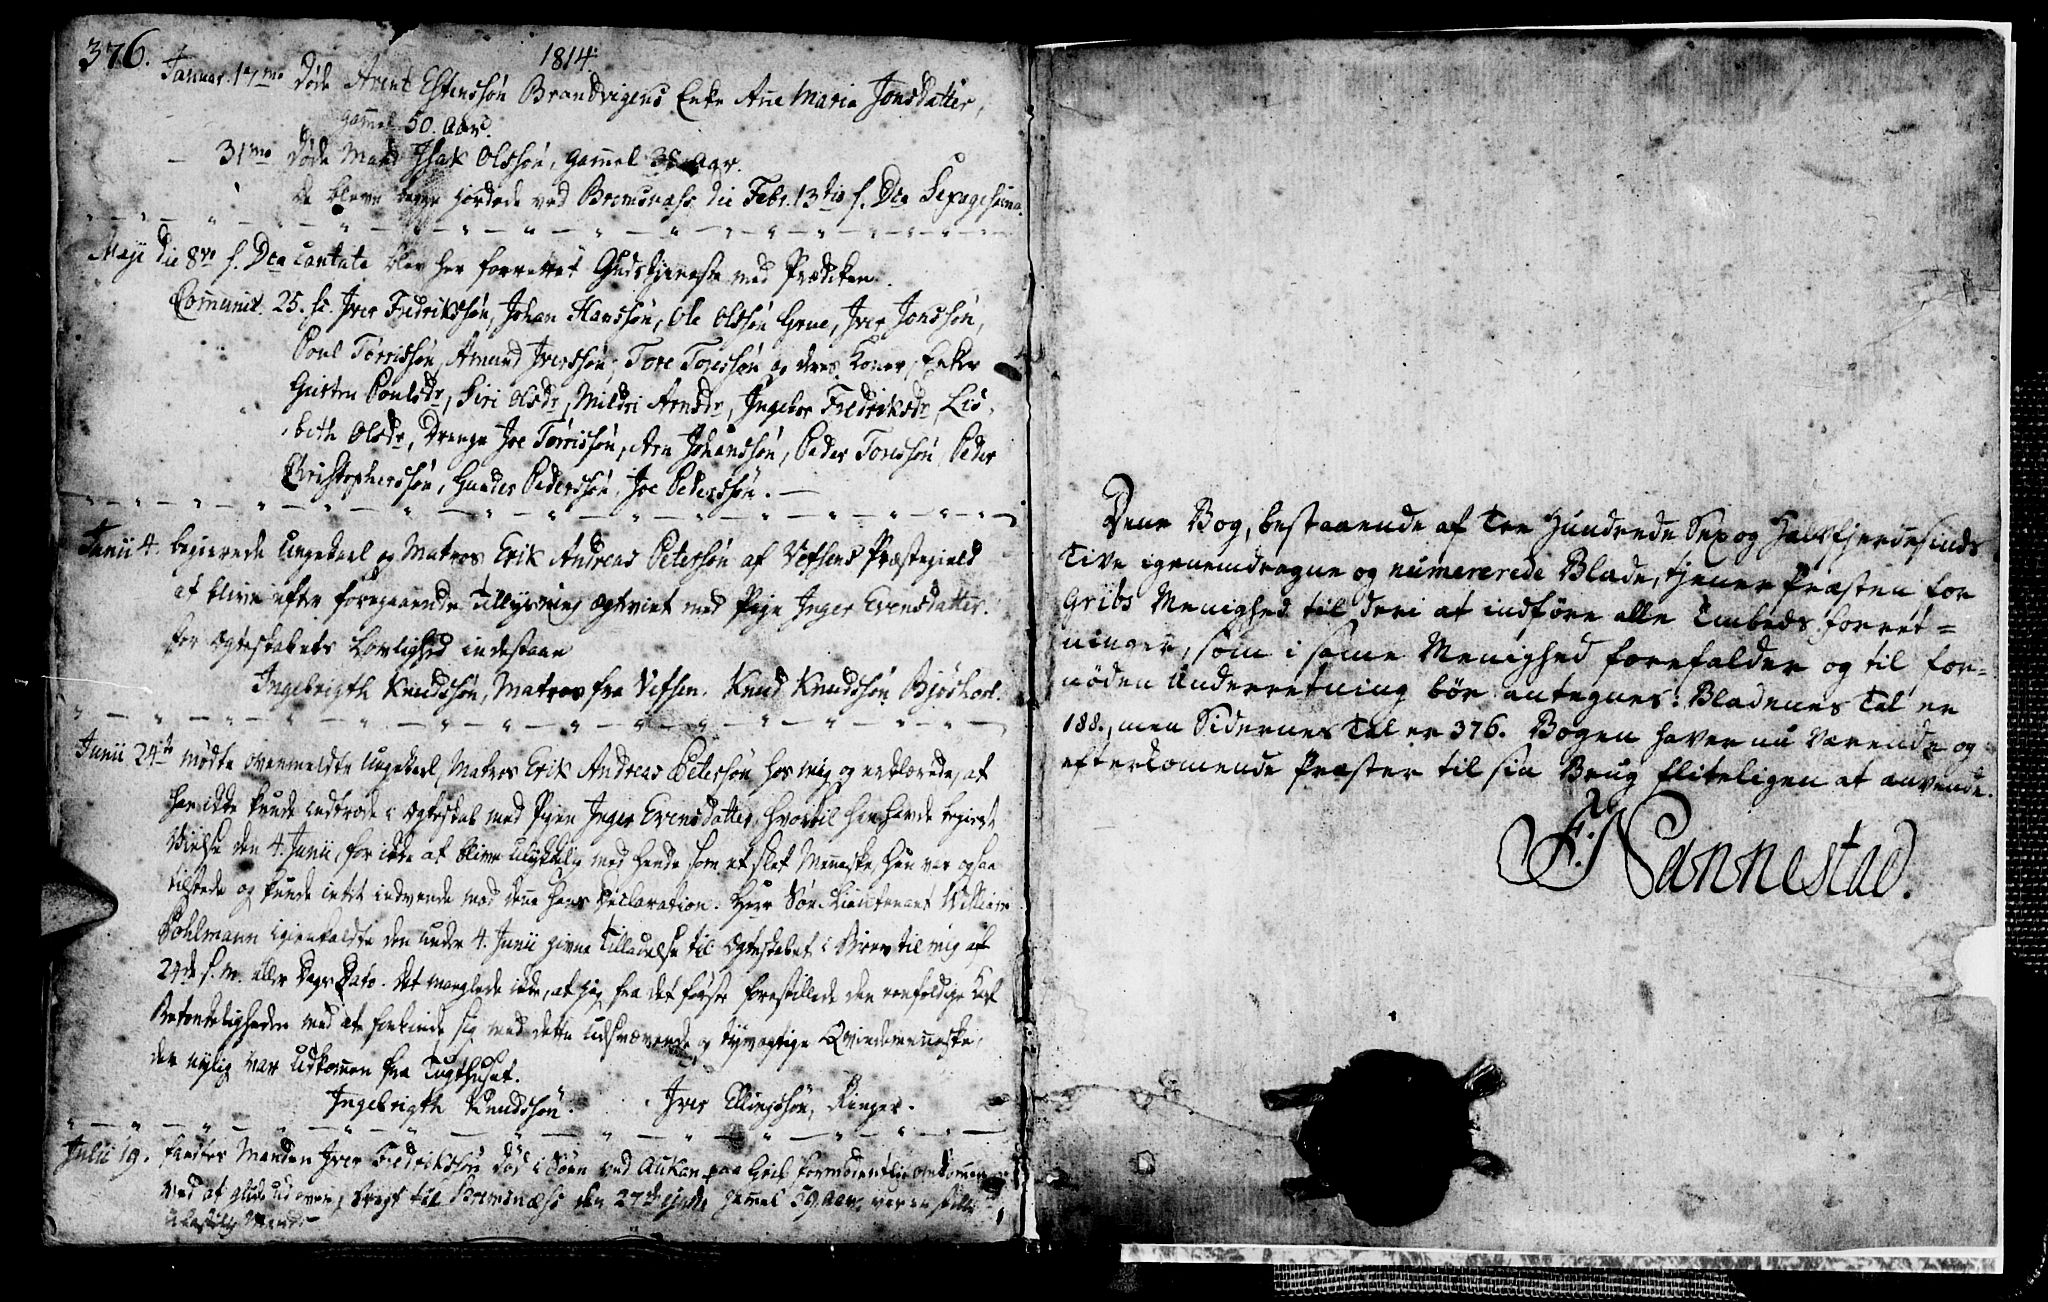 376.
1814.
Januar. 17mo døde Arent Estensøn Brandvigens Enke Ane Maria Jonsdatter,
gamel 50. Aar.
— 31mo døde Mand Isak Olssøn, gamel 38 Aar.
De bleve begge jordede ved Bremsnæss die Febr. 13tio f. Dca Sexagesima.
Maji die 8vo f. Dca Cantate blev her forrettet Gudstjeneste med Prædiken.
Comunic. 25. sc. Iver Fredrikssøn, Johan Hanssøn, Ole Olssøn Grue, Iver Jonssøn,
Poul Tørrissøn, Amund Iverssøn, Tore Toressøn og deres Koner, Enker
Gurten Poulsdr, Siri Olsdr, Mildri Arnsdr, Ingebor Fredriksdr, Lis-
beth Olsdr, Drenge Joe Tørrissøn, Arn Johanssøn, Peder Toressøn, Peder
Christopherssøn, Gunder Pederssøn, Joe Pederssøn. —
Junii 4. begierede Ungekarl og Matros Erik Andreas Peterssøn af Vefsens Præstegield
at blive efter foregaaende Tillysning ægteviet med Pige Inger Evensdatter.
for Ægteskabets Lovlighed indestaae
Ingebrigth Knudssøn, Matros fra Vefsen. Knud Knudssøn
Junii 24de mødte ovenmeldte Ungekarl, Matros Erik Andreas Peterssøn hos mig og erklærede, at
han ikke kunde indtræde i Ægteskab med Pigen Inger Evensdatter, hvortil han havde begiert
Vielse den 4. Junii, for ikke at blive ulykkelig med hende som et slet Meneske, hun var ogsaa
tilstede og kunde intet indvende mod dene hans Declaration. Herr Søe Lieutenant William
Pohlmann igienkaldte den under 4. Junii givne Tilladelse til Ægteskabet i Brev til mig af
24de s. M. eller Dags Dato. Det manglede ikke, at jeg fra det første forestillede den eenfoldige Karl
Betænkeligheden med at forbinde sig med dette udsvævende og tyvagtige Qvindemeneske,
der nylig var udkomen fra Tugthuset.
Ingebrigth Knudssøn. Iver Ellingssøn, Ringer.
Julii 19. fandtes Manden Iver Fredrikssøn død i Søen ved paa Grib formodentlig omkomen
ved at glide ud over, bragt til Bremsnæss den 27de gamel 59 Aar, var en stille
Mand.
Dene Bog, bestaaende af Tre Hundrede Sex og Halvfjerdesinds
Tive igienemdragne og numererede Blade, tjener Præsten for
Gribs Menighed til deri at indføre alle Embeds forret=
ninger, som i same Menighed forefalder og til for=
nøden Underretning bør antegnes. Bladenes Tal er
188., men Sidernes Tal er 376. Bogen haver nu værende og
efterkomende Præster til sin Brug fliteligen at anvende.
F. Nannestad.